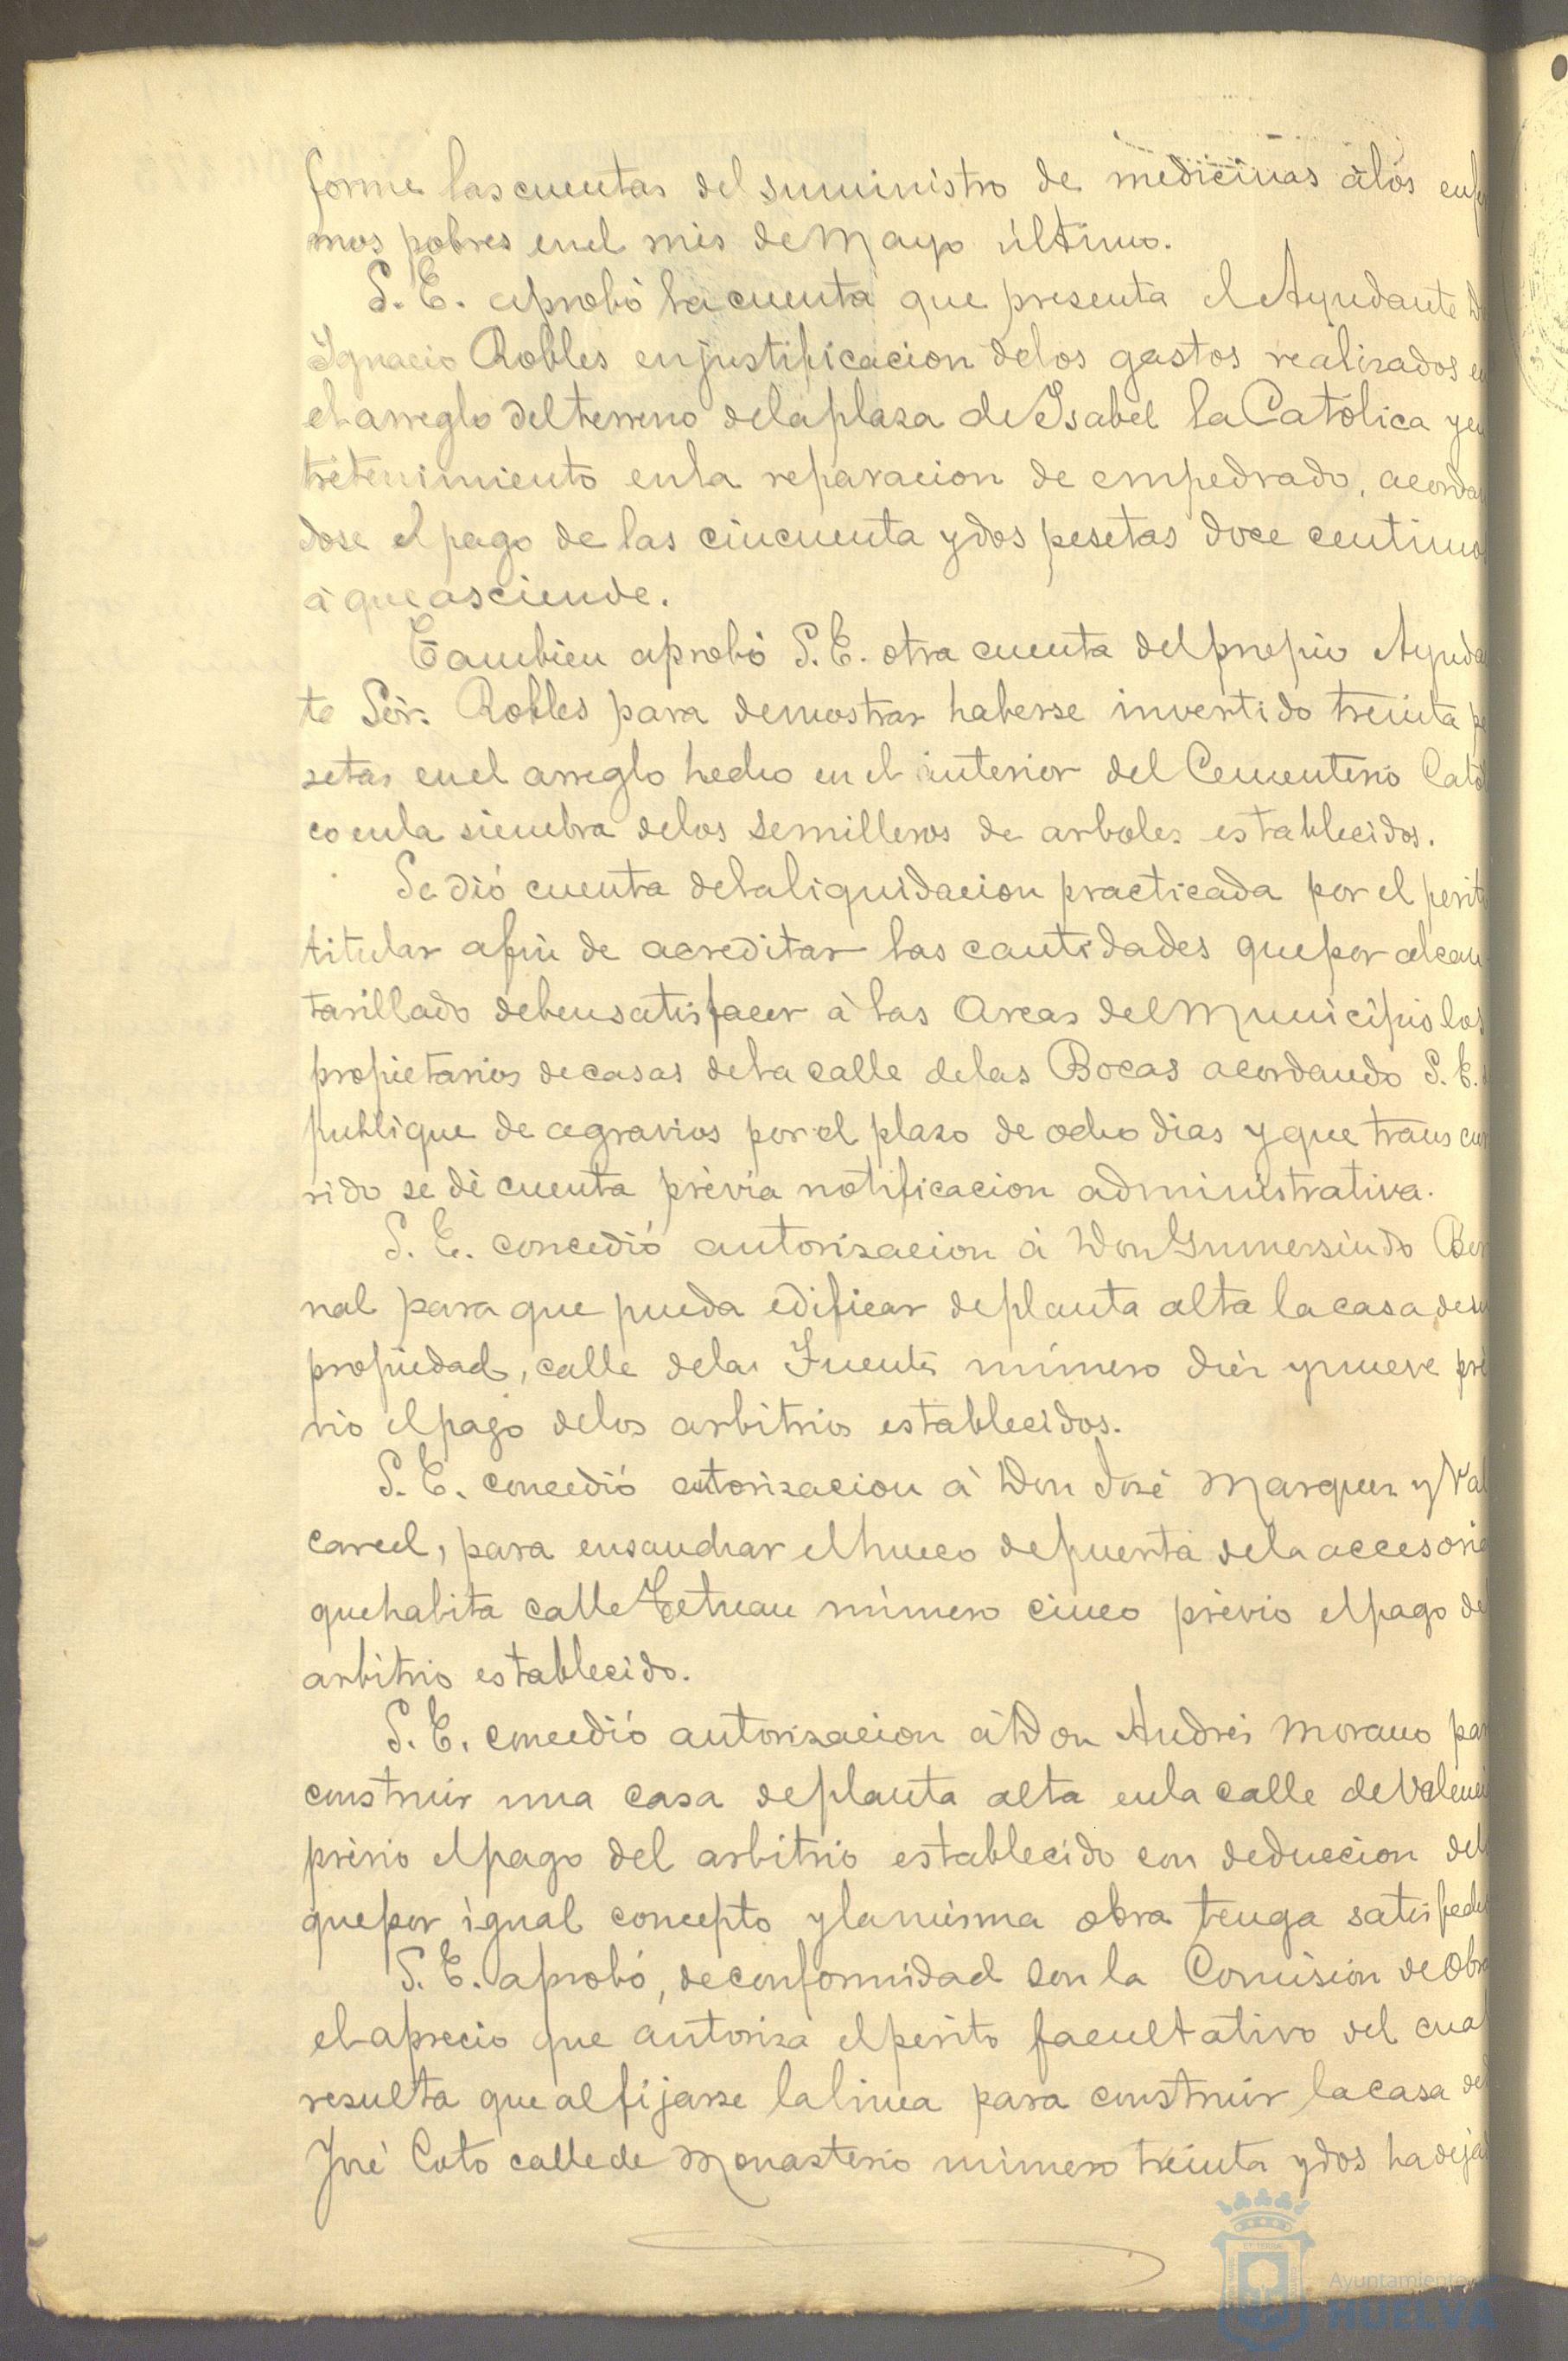 forme las cuentas del suministro de medicinas à los enfer
mos pobres en el mes de Mayo último.
S. E. aprobó la cuenta que presenta el Ayudante D
Ignacio Robles en justificacion de los gastos realizados en
el arreglo del terreno de la plaza de Isabel la Católica y en
tretenimiento en la reparacion de empedrado, acordan
dose el pago de las cincuenta y dos pesetas doce centimos
à que asciende.
Tambien aprobó S. E. otra cuenta del propio Ayudan
te Sor. Robles para demostrar haberse invertido treinta pe
setas en el arreglo hecho en el interior del Cementerio Catoli
co en la siembra de los semilleros de arboles establecidos.
Se dió cuenta de la liquidacion practicada por el perito
titular afin de acreditar las cantidades que por alcan
tarillado deben satisfacer à las Arcas del Municipio los
propietarios de casas de la calle de las Bocas acordando S. E.
publique de agravios por el plazo de ocho dias y que transcur
rido se dè cuenta prèvia notificacion administrativa.
S. E. concedió autorizacion à Don Gumersindo Ber
nal para que pueda edificar de planta alta la casa de su
propiedad, calle de la Fuente número diez y nueve prè
vio el pago de los arbitrios establecidos.
S. E. concedió autorizacion à Don José Marquez y Val
carcel, para ensanchar el hueco de puerta de la accesoria
que habita calle Tetuan número cinco prèvio el pago del
arbitrio establecido.
S. E. concedió autorizacion à Don Andrés Morano par
construir una casa de planta alta en la calle de Valencia
prèvio el pago del arbitrio establecido con deduccion del
que por igual concepto y la misma obra tenga satisfecho
S. E. aprobó, de conformidad con la Comision de Obra
el aprecio que autoriza el perito facultativo del cual
resulta que al fijarse la linea para construir la casa de
José Coto calle de Monasterio número treinta y dos ha dejad
Ayuntamiento
HUELVA